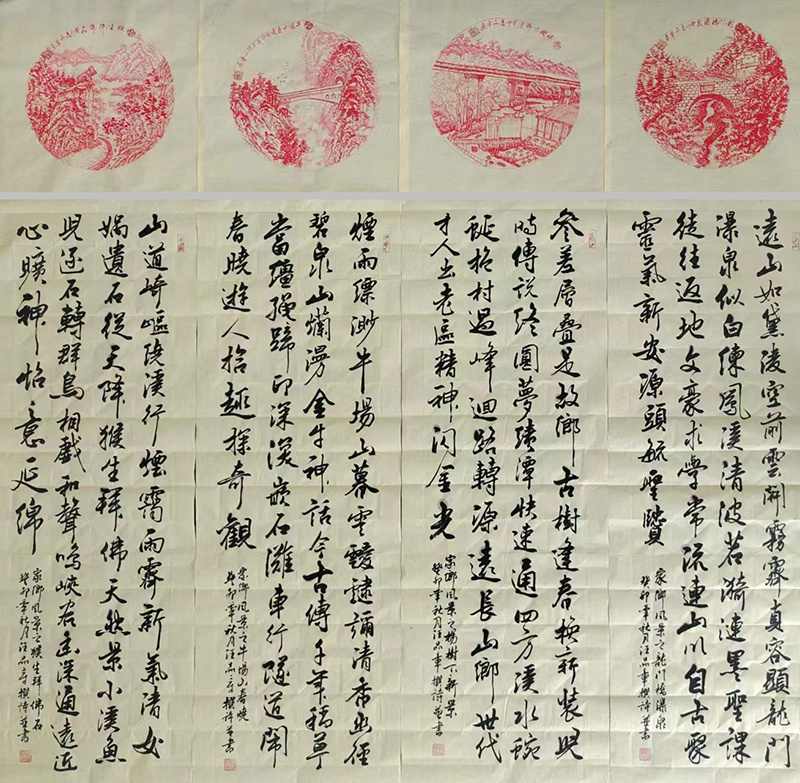 遠山如黛凌空前雲開霧霽真容顯龍門
瀑泉似白練鳳溪清波若漪漣墨聖課
徒往返地文豪求學常流連山川自古聚
靈氣新安源頭毓聖賢
家鄉風景之龍門橋瀑泉
癸卯年秋月汪品撰詩並書
參差層疊是故鄉古樹逢春換新裝兒
時傳說終圓夢潭快速通四方溪水蜿
蜒於村過峰迴路轉源遠長山鄉世代
才人出老區精神閃金光
家鄉風景之楊樹下新景
癸卯年秋月汪品撰詩並書
煙雨縹渺牛場山暮雲靉靆瀰清香幽徑
碧泉山爛漫金牛神話今古傳千年稿草
當韁繩蹄印深淺嵌石灘車行隧道聞
春曉遊人拾趣探奇觀
家鄉風景之牛場山春曉
癸卯年秋月汪品撰詩並書
山道崎嶇繞溪行煙霭雨霽新氣清女
媧遺石從天降猴生拜佛天然景小溪魚
兒逐石轉群鳥相戲和聲鳴峽谷幽深通遠近
心曠神怡意延綿
家鄉風景之猴生拜佛石
癸卯年秋月汪品撰詩並書